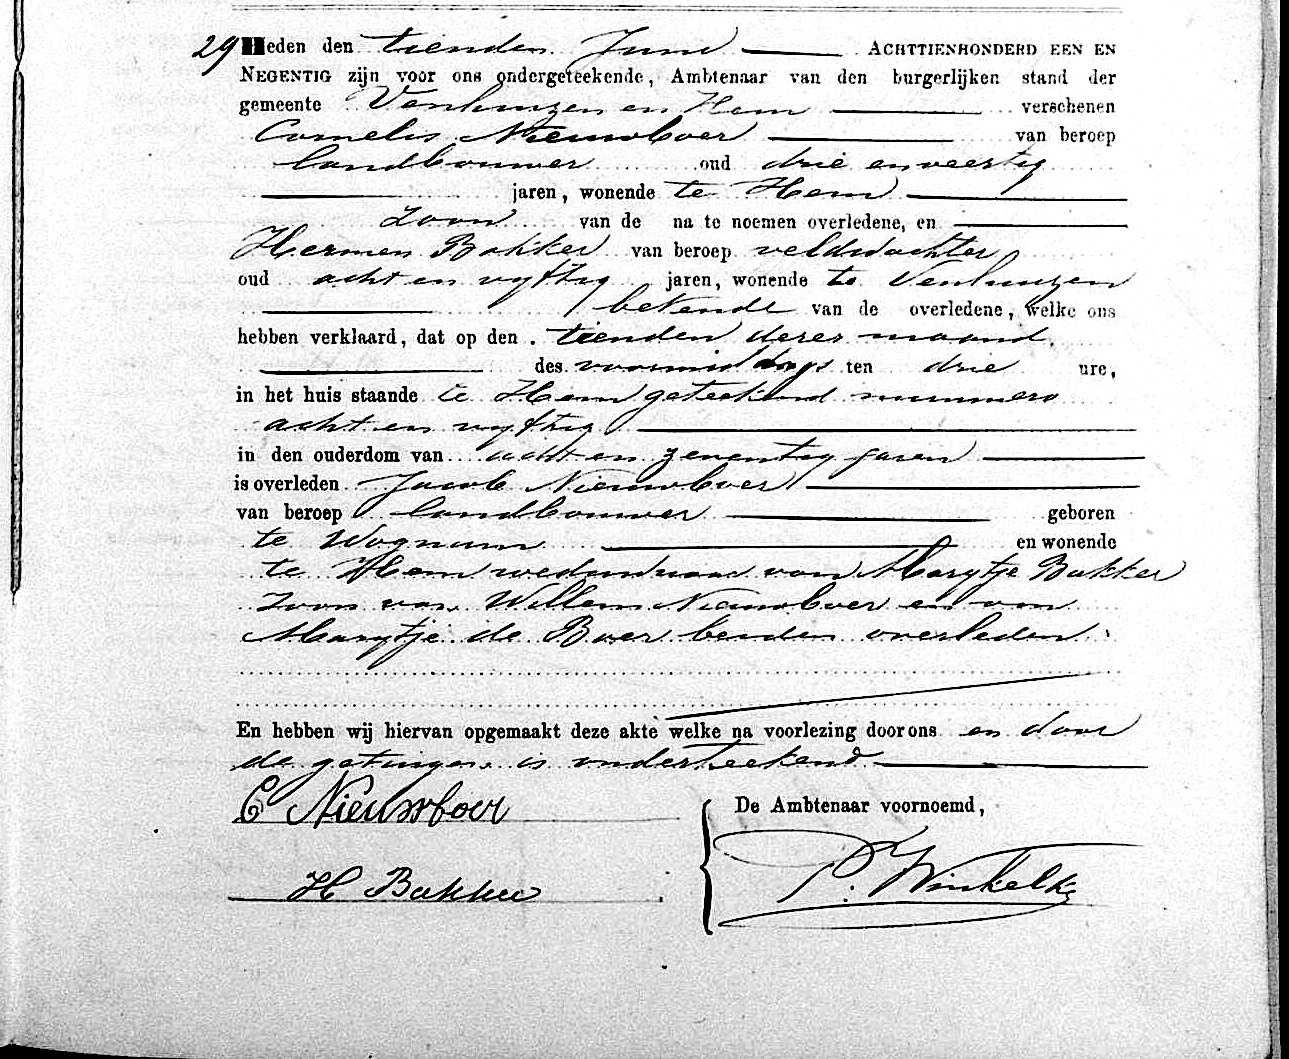 29 Heden den tienden Juni Achttienhonderd een en
Negentig zijn voor ons ondergeteekende, Ambtenaar van den burgerlijken stand der
gemeente Venhuizen en Hem verschenen
Cornelis Nieuwboer van beroep
landbouwer oud drie en veertig
jaren, wonende te Hem
zoon van de na te noemen overledene, en
Hermen Bakker van beroep veldwachter
oud acht en vyftig jaren, wonende te Venhuizen
bekende van de overledene, welke ons
hebben verklaard, dat op den tienden dezer maand
des voormiddags ten drie ure,
in het huis staande te Hem geteekend nummero
acht en vyftig
in den ouderdom van acht en zeventig jaren
is overleden Jacob Nieuwboer
van beroep landbouwer geboren
te Wognum en wonende
te Hem weduwnaar van Marytje Bakker
zoon van Willem Nieuwboer en van
Marytje de Boer beiden overleden
En hebben wij hiervan opgemaakt deze akte welke na voorlezing door ons en door
de getuigen is onderteekend
C Nieuwboer
De Ambtenaar voornoemd,
H Bakker
P. Winkel